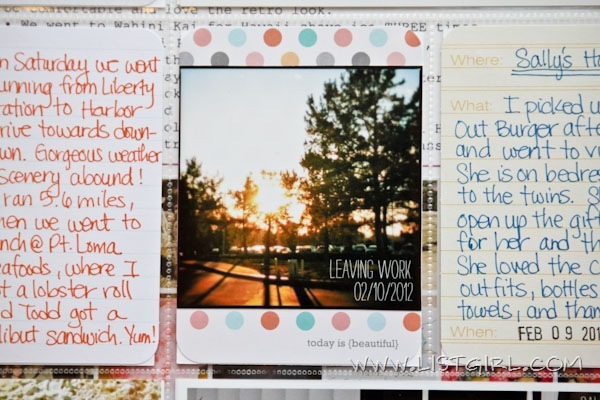 the retro look.
We went to Wahini Kai for Hawaii
THREE time
n Saturday we went
unning from Liberty
tation to Harbor
rive towards down-
wn. Gorgeous weather
scenery abound!
ran 5.6 miles,
hen we went to
nch @ Pt. Loma
eafoods, where I
ot a lobster roll
nd Todd got a
libut sandwich. Yum!
LEAVING WORK
02/10/2012
today is {beautiful}
Where: Sally's Ho
What: I picked u
Out Burger afte
and went to vi
She is on bedres
to the twins. Sh
open up the gift
for her and th
She loved the c
outfits, bottles
towels, and than
When: FEB 09 201
WWW.LISTGIRL.COM